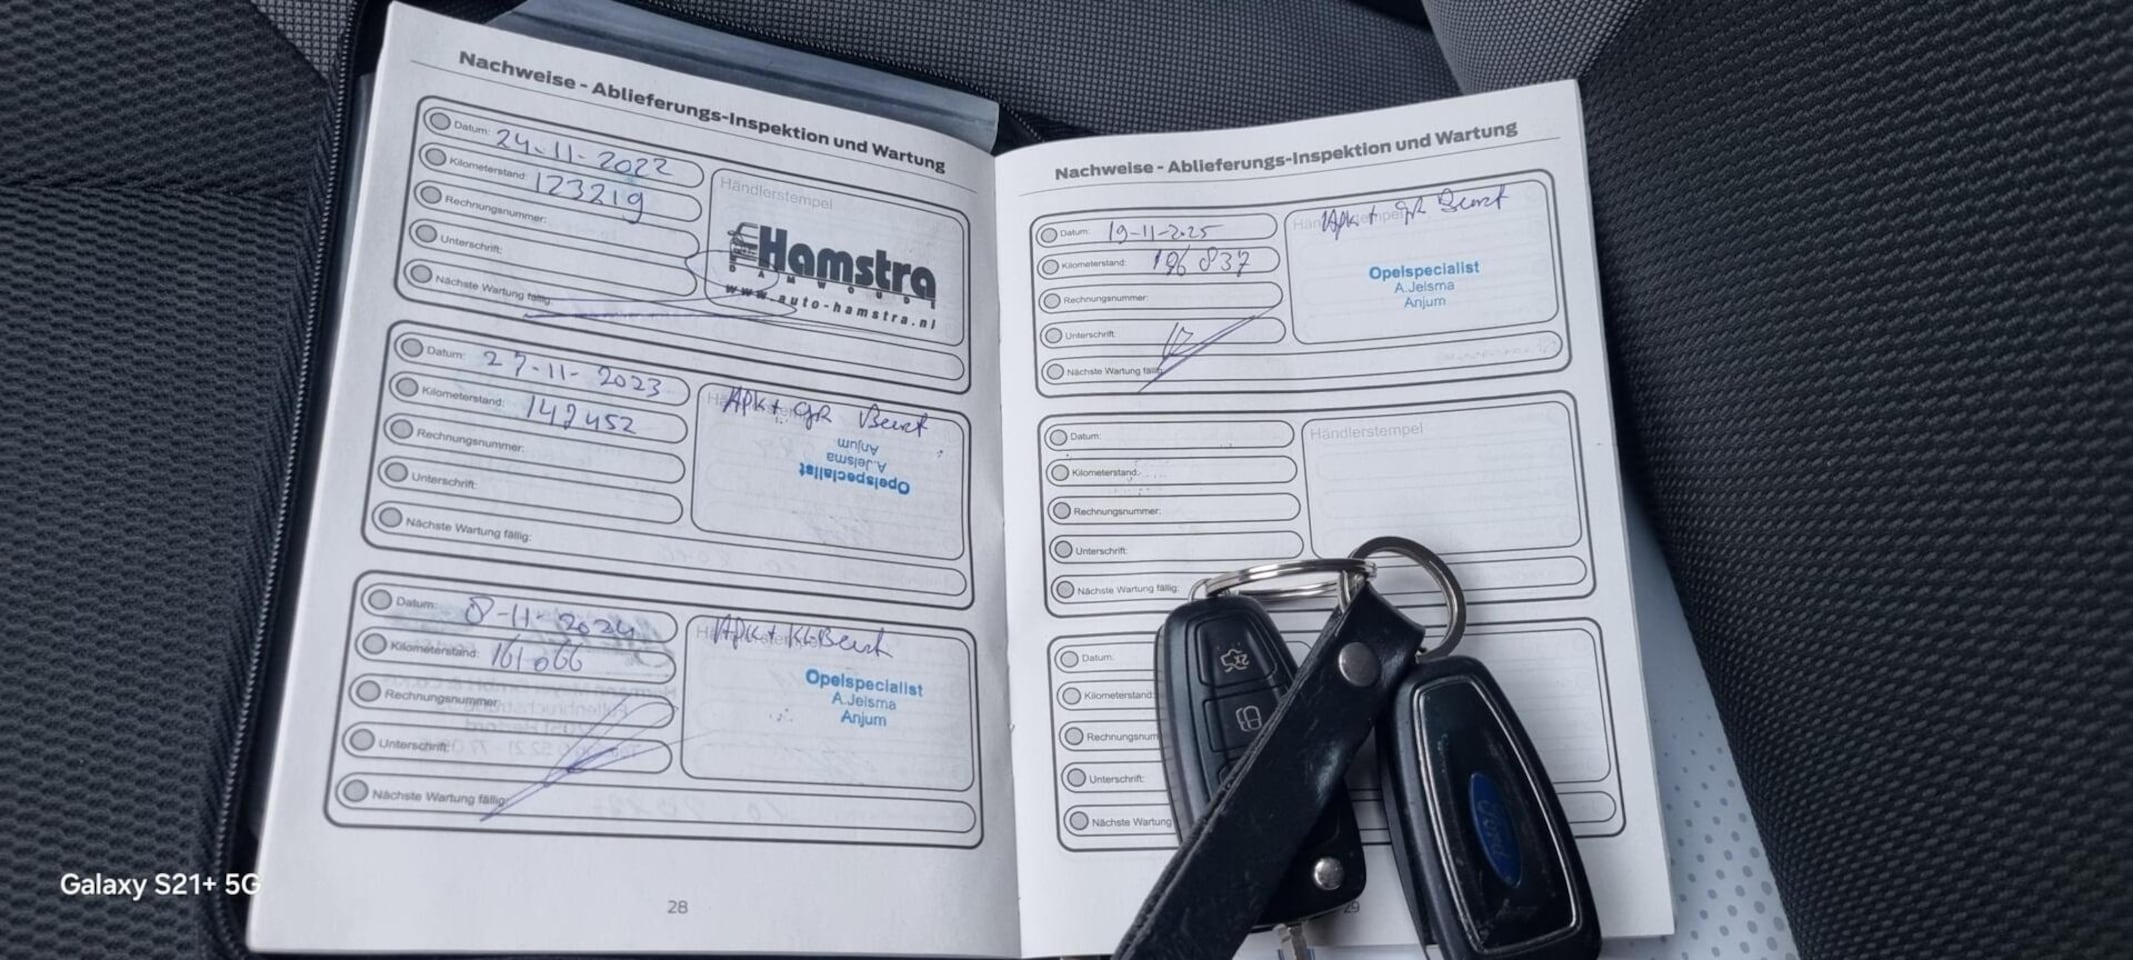 Nachweise - Ablieferungs-Inspektion und Wartung
Datum: 24-11-2022
Kilometerstand: 123219
Rechnungsnummer:
Unterschrift:
Nächste Wartung fällig:
Händlerstempel
Hamstra
DAMWOUDE
www.auto-hamstra.nl
Datum: 27-11-2023
Kilometerstand: 142452
Rechnungsnummer:
Unterschrift:
Nächste Wartung fällig:
Apk + gr Beurt
Opelspecialist
A.Jelsma
Anjum
Datum: 8-11-2024
Kilometerstand: 161066
Rechnungsnummer:
Unterschrift:
Nächste Wartung fällig:
Apk + Kl Beurt
Opelspecialist
A.Jelsma
Anjum
28
Nachweise - Ablieferungs-Inspektion und Wartung
Datum: 19-11-2025
Kilometerstand: 196837
Rechnungsnummer:
Unterschrift:
Nächste Wartung fällig:
Apk + gr Beurt
Opelspecialist
A.Jelsma
Anjum
Datum:
Kilometerstand:
Rechnungsnummer:
Unterschrift:
Nächste Wartung fällig:
Händlerstempel
Datum:
Kilometerstand:
Rechnungsnum
Unterschrift:
Nächste Wartung
29
Ford
Galaxy S21+ 5G